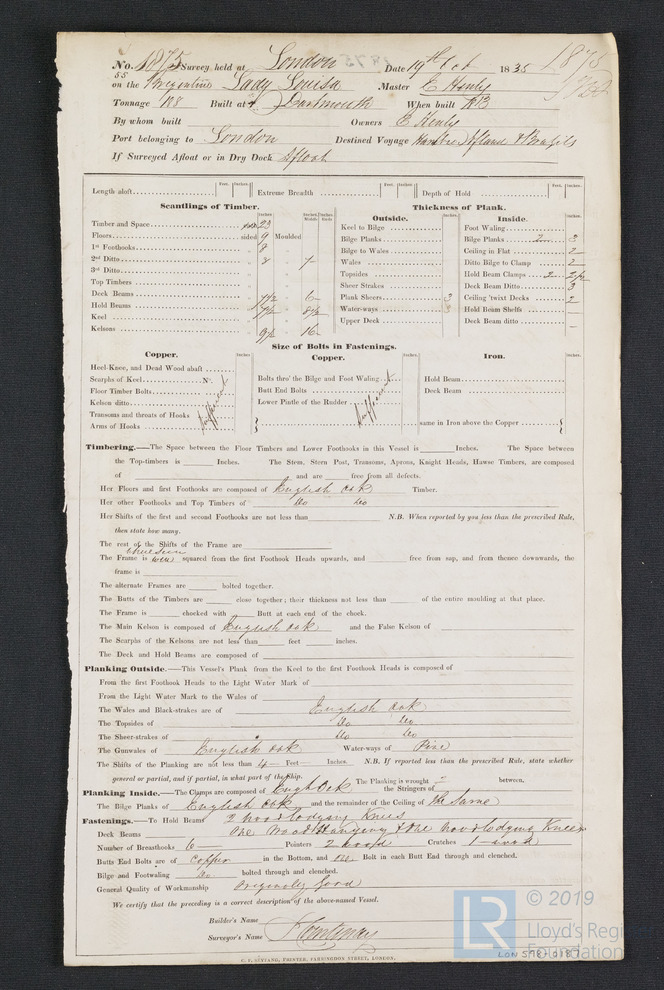 No. 1875 Survey held at London Date 19th Oct 1835 1875
55 on the Brigantine Lady Louisa Master E Henly
Tonnage 128 Built at Dartmouth When built
By whom built Owners E Henly
Port belonging to London Destined Voyage & Brazils
If Surveyed Afloat or in Dry Dock Afloat
Length aloft Feet. Inches. Extreme Breadth Feet. Inches. Depth of Hold Feet. Inches.
Scantlings of Timber. Thickness of Plank.
Inches. Inches. Inches. Outside. Inches. Inside. Inches.
Timber and Space 23 Keel to Bilge Foot Waling
Floors sided 9 Moulded Bilge Planks Bilge Planks 2 3
1st Foothooks 8 Bilge to Wales Ceiling in Flat 2
2nd Ditto 8 7 Wales Ditto Bilge to Clamp 2
3rd Ditto Topsides Hold Beam Clamps 2 2½
Top Timbers Sheer Strakes Deck Beam Ditto 3
Deck Beams 7½ 6 Plank Sheers 3 Ceiling 'twixt Decks 2
Hold Beams 7½ 8½ Water-ways Hold Beam Shelfs
Keel Upper Deck Deck Beam ditto
Kelsons 9½ 16
Size of Bolts in Fastenings.
Copper. Inches. Copper. Inches. Iron. Inches.
Heel-Knee, and Dead Wood abaft
Scarphs of Keel No. Bolts thro' the Bilge and Foot Waling Hold Beam
Floor Timber Bolts Butt End Bolts Deck Beam
Kelson ditto Lower Pintle of the Rudder
Transoms and throats of Hooks Sufficient Sufficient
Arms of Hooks same in Iron above the Copper
Timbering.—The Space between the Floor Timbers and Lower Foothooks in this Vessel is Inches. The Space between
the Top-timbers is Inches. The Stem, Stern Post, Transoms, Aprons, Knight Heads, Hawse Timbers, are composed
of and are free from all defects.
Her Floors and first Foothooks are composed of English Oak Timber.
Her other Foothooks and Top Timbers of Do Do
Her Shifts of the first and second Foothooks are not less than N.B. When reported by you less than the prescribed Rule,
then state how many.
The rest of the Shifts of the Frame are
The Frame is well squared from the first Foothook Heads upwards, and free from sap, and from thence downwards, the
frame is
The alternate Frames are bolted together.
The Butts of the Timbers are close together; their thickness not less than of the entire moulding at that place.
The Frame is chocked with Butt at each end of the chock.
The Main Kelson is composed of English Oak and the False Kelson of
The Scarphs of the Kelsons are not less than feet inches.
The Deck and Hold Beams are composed of
Planking Outside.—This Vessel's Plank from the Keel to the first Foothook Heads is composed of
From the first Foothook Heads to the Light Water Mark of
From the Light Water Mark to the Wales of
The Wales and Black-strakes are of English Oak
The Topsides of Do Do
The Sheer-strakes of Do Do
The Gunwales of English Oak Water-ways of Pine
The Shifts of the Planking are not less than 4 Feet Inches. N.B. If reported less than the prescribed Rule, state whether
general or partial, and if partial, in what part of the Ship. The Planking is wrought between.
Planking Inside.—The Clamps are composed of Engh Oak the Stringers of
The Bilge Planks of English Oak and the remainder of the Ceiling of the Same
Fastenings.—To Hold Beams 2 wood lodging Knees
Deck Beams One Wood Hanging & One wood lodging Knees
Number of Breasthooks 6 Pointers 2 wood Crutches 1 wood
Butts End Bolts are of Copper in the Bottom, and One Bolt in each Butt End through and clenched.
Bilge and Footwaling Do bolted through and clenched.
General Quality of Workmanship Originally Good
We certify that the preceding is a correct description of the above-named Vessel.
Builder's Name
Surveyor's Name
C. F. SEYFANG, PRINTER, FARRINGDON STREET, LONDON.
LR © 2019
Lloyd's Register
Foundation
LON 598-0187